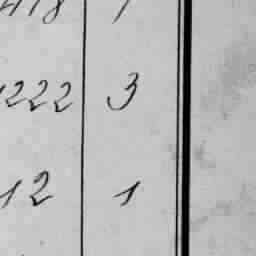 418 1
1222 3
12 1